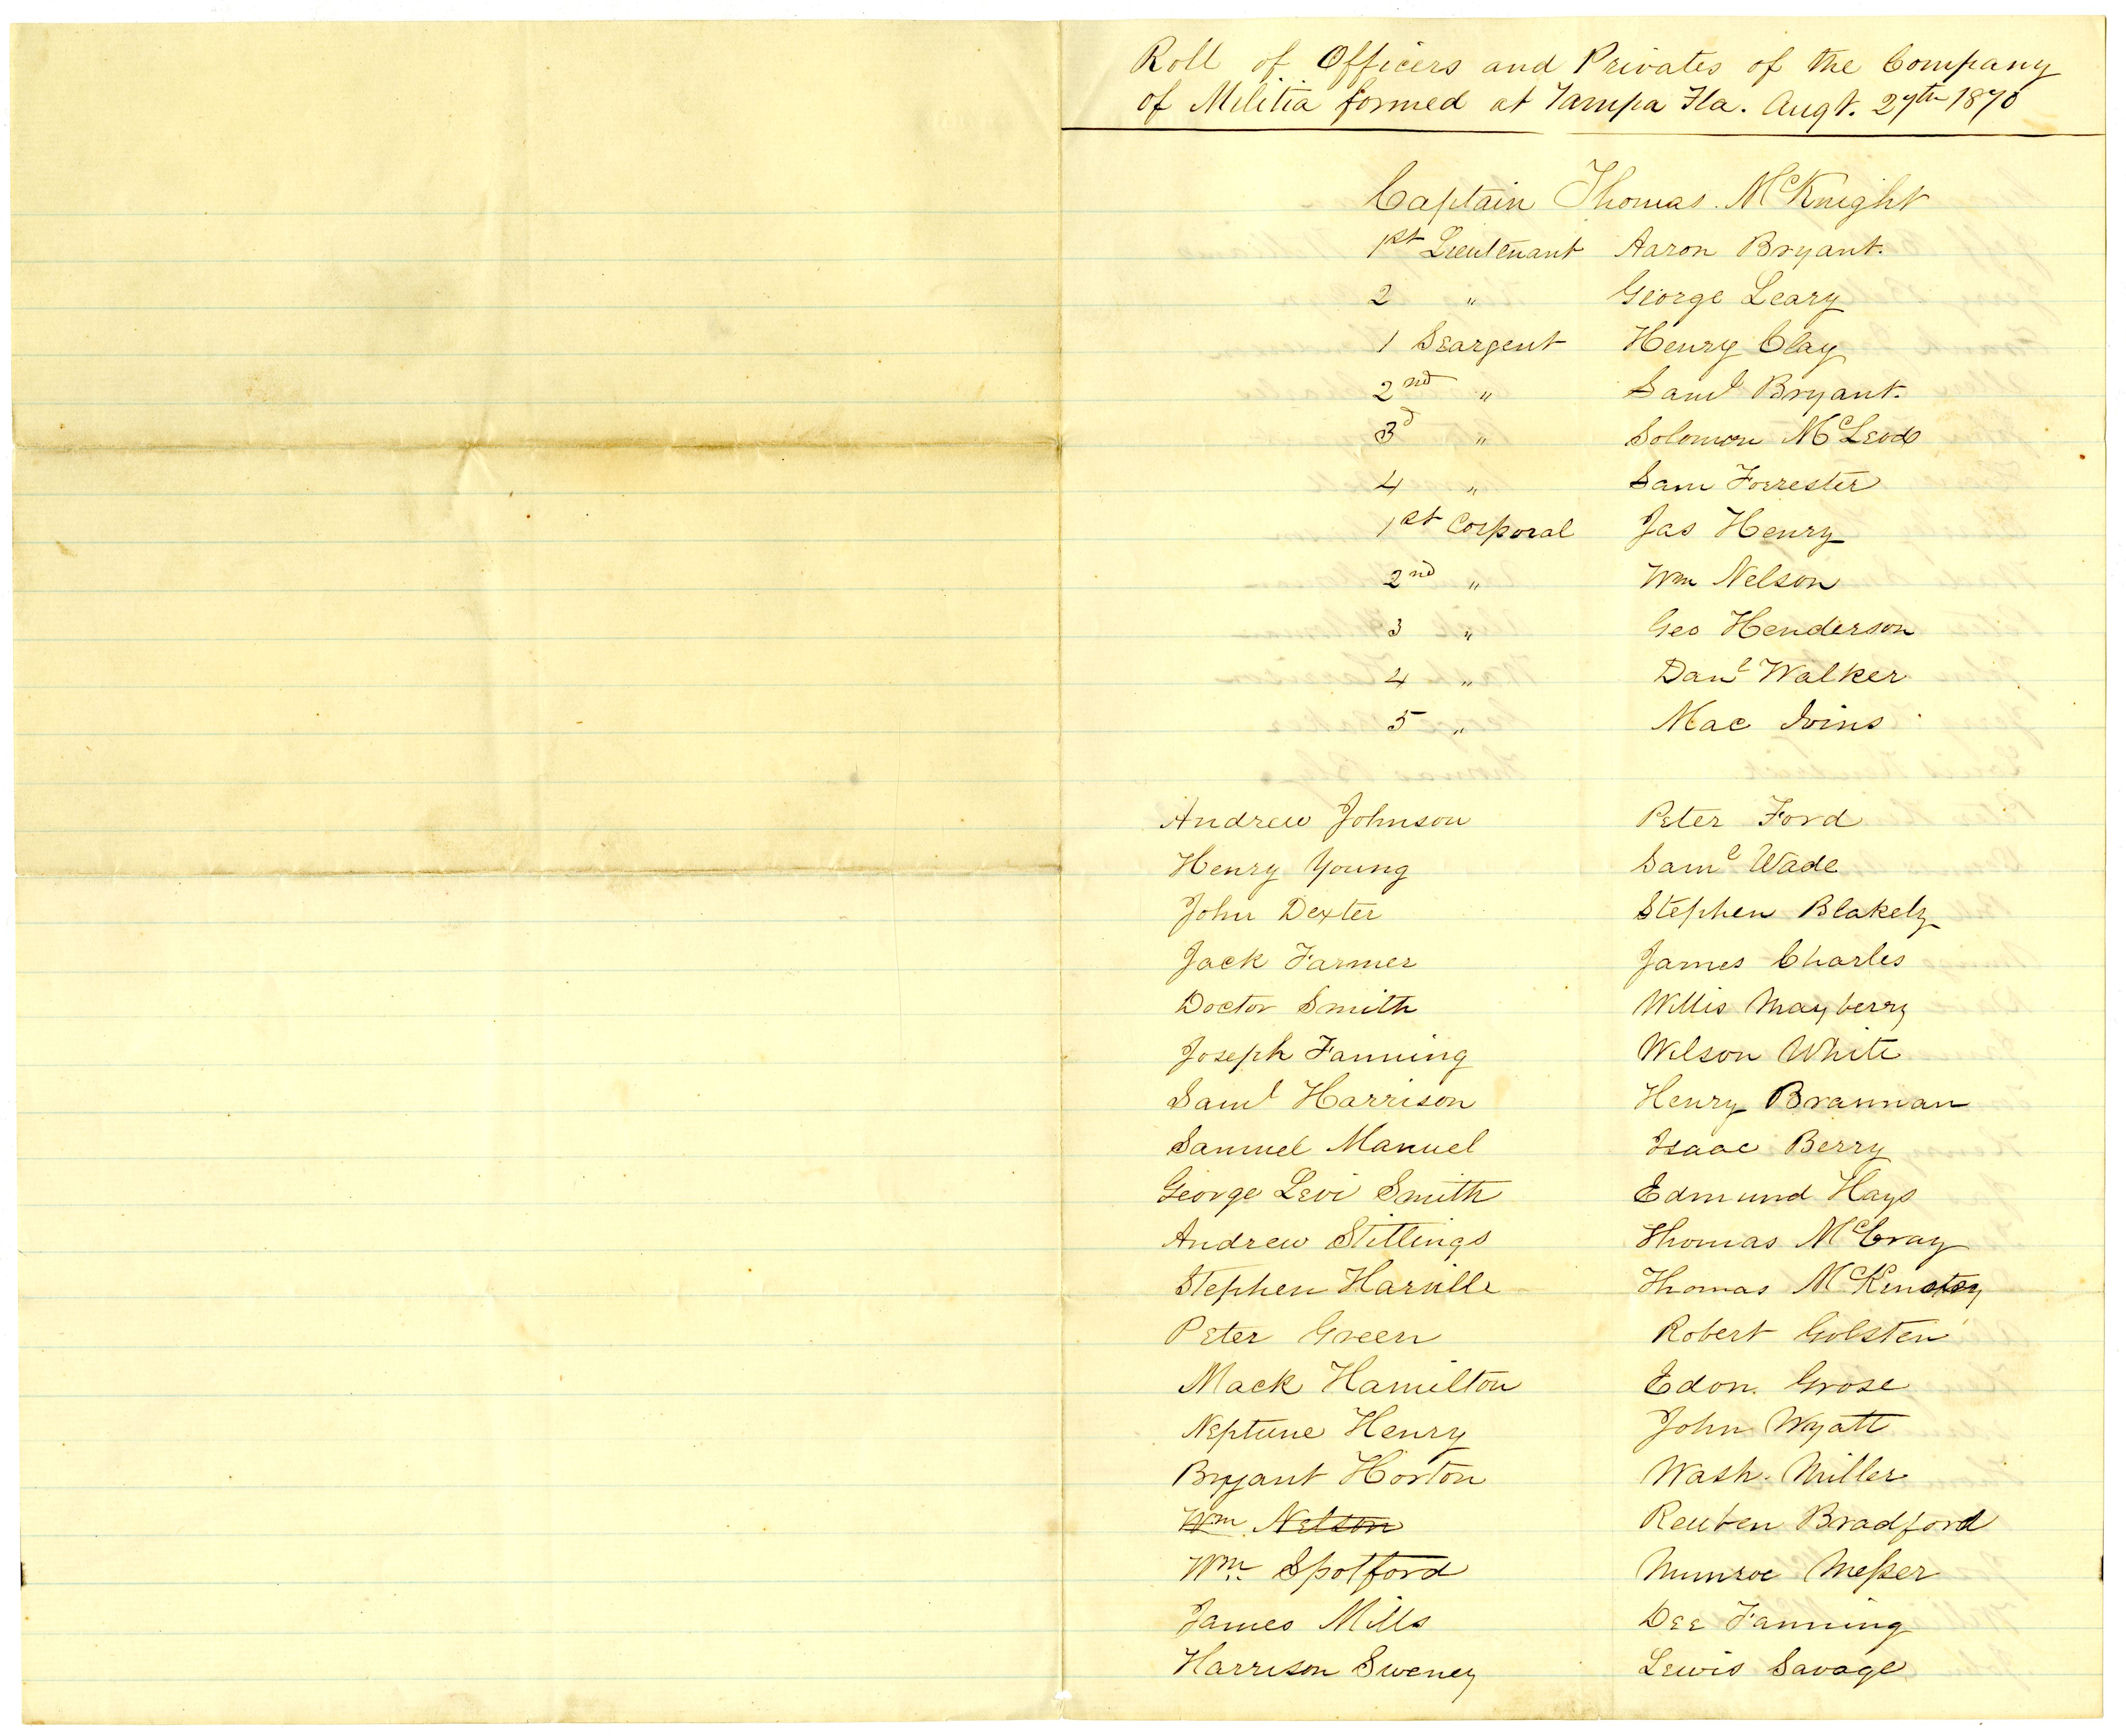 Roll of Officers and Privates of the Company
of Militia formed at Tampa Fla. Augt. 27th 1870
Captain Thomas McKnight
1st Lieutenant Aaron Bryant.
2 " George Leary
1 Seargent Henry Clay
2nd " Saml Bryant.
3d " Solomon McLeod
4 " Sam Forrester
1st Corporal Jas Henry
2nd " Wm Nelson
3 " Geo Henderson
4 " Danl Walker
5 " Mac Ivins
Andrew Johnson Peter Ford
Henry Young Saml Wade
John Dexter Stephen Blakely
Jack Farmer James Charles
Doctor Smith Willis Mayberry
Joseph Fanning Wilson White
Saml Harrison Henry Brannan
Samuel Manuel Isaac Berry
George Levi Smith Edmund Hays
Andrew Stillings Thomas McCray
Stephen Harville Thomas McKinstry
Peter Green Robert Golsten
Mack Hamilton Edon. Grose
Neptune Henry John Wyatt
Bryant Horton Wash. Miller
Wm Nelson Reuben Bradford
Wm. Spotford Munroe Messer
James Mills Dee Fanning
Harrison Sweney Lewis Savage